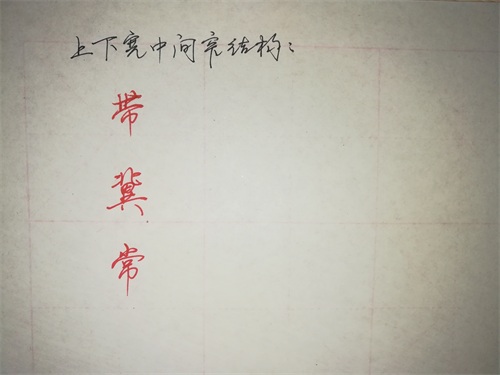 上下宽中间窄结构：
带
冀
常